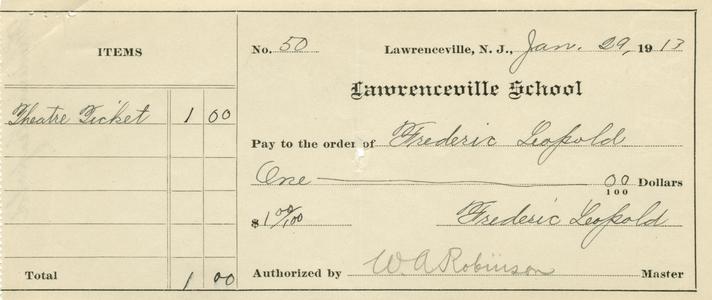 ITEMS
Theatre Ticket 1 00
Total 1 00
No. 50 Lawrenceville, N. J., Jan. 29, 1913
Lawrenceville School
Pay to the order of Frederic Leopold
One 00/100 Dollars
$ 1 00/100 Frederic Leopold
Authorized by W. A. Robinson Master